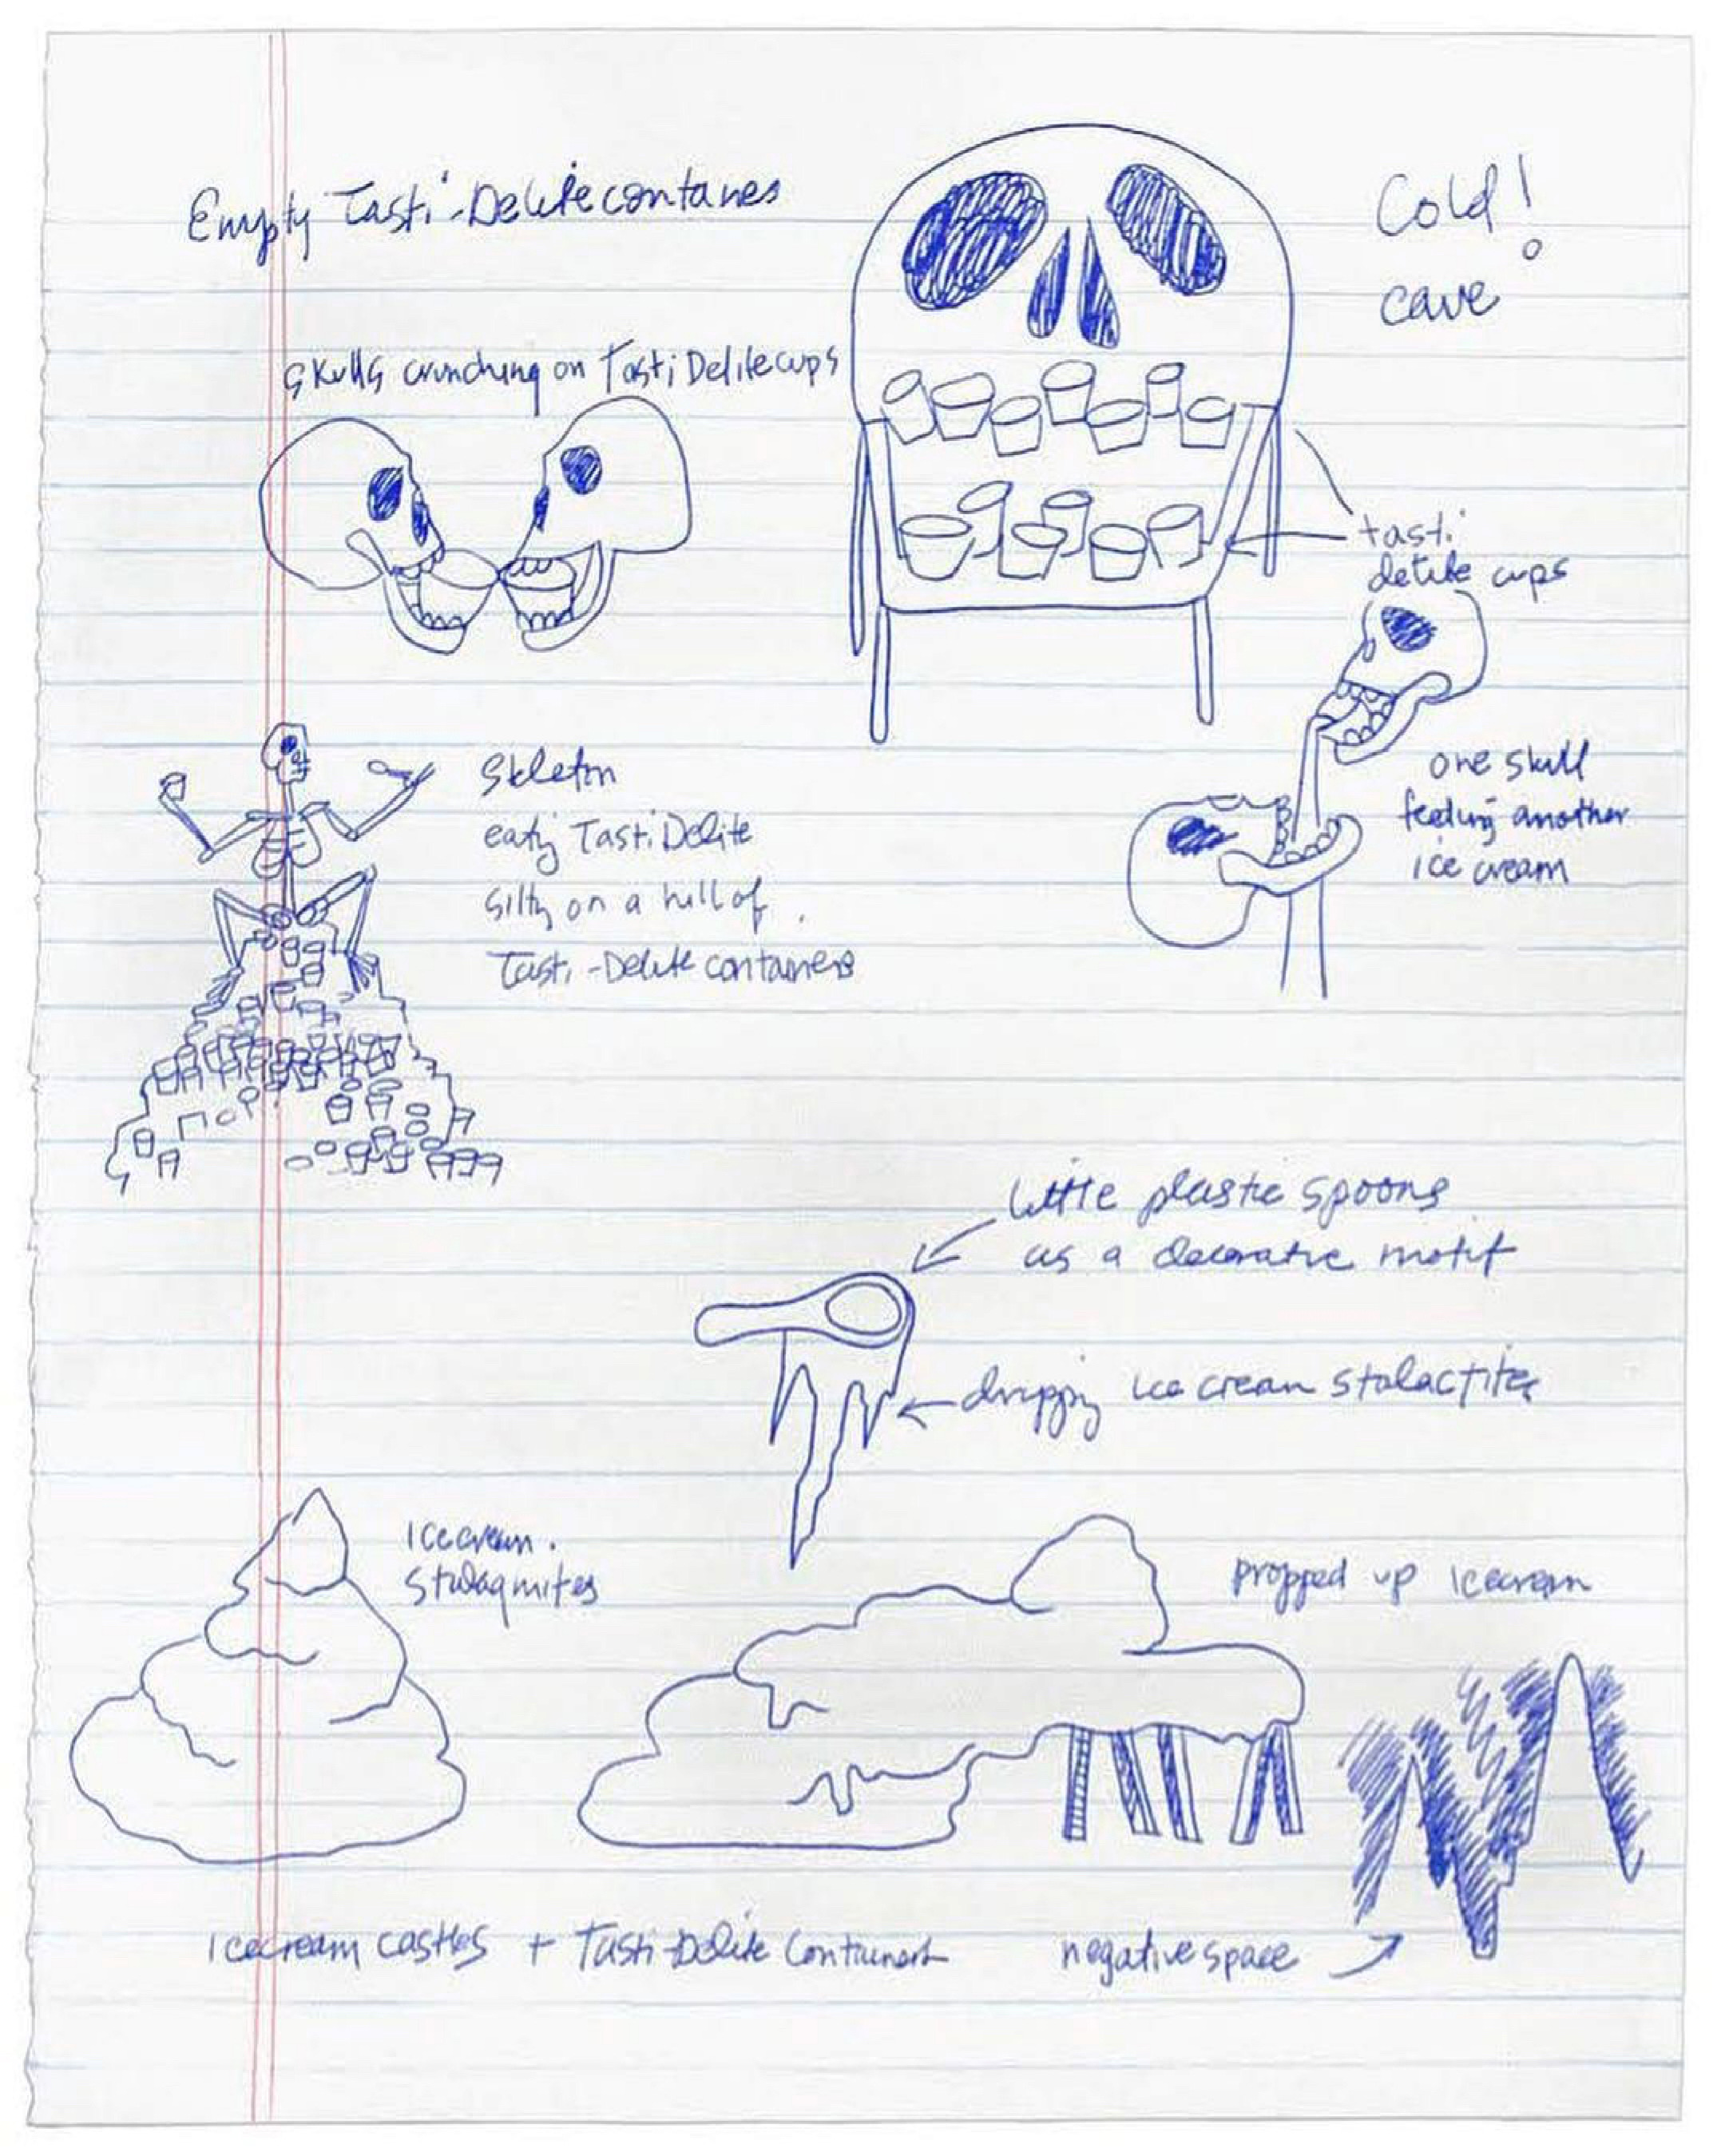 Empty Tasti-Delite contanes
Cold!
cave
skulls crunching on Tasti Delite cups
tasti
delite cups
one skull
feeding another
ice cream
Skeleton
eatig Tasti Delite
sittg on a hill of
Tasti-Delite containers
little plastic spoons
as a decorative motif
drippig ice cream stalactites
icecream.
stalagmites
propped up icecream
icecream castles + Tasti-Delite Containers
negative space